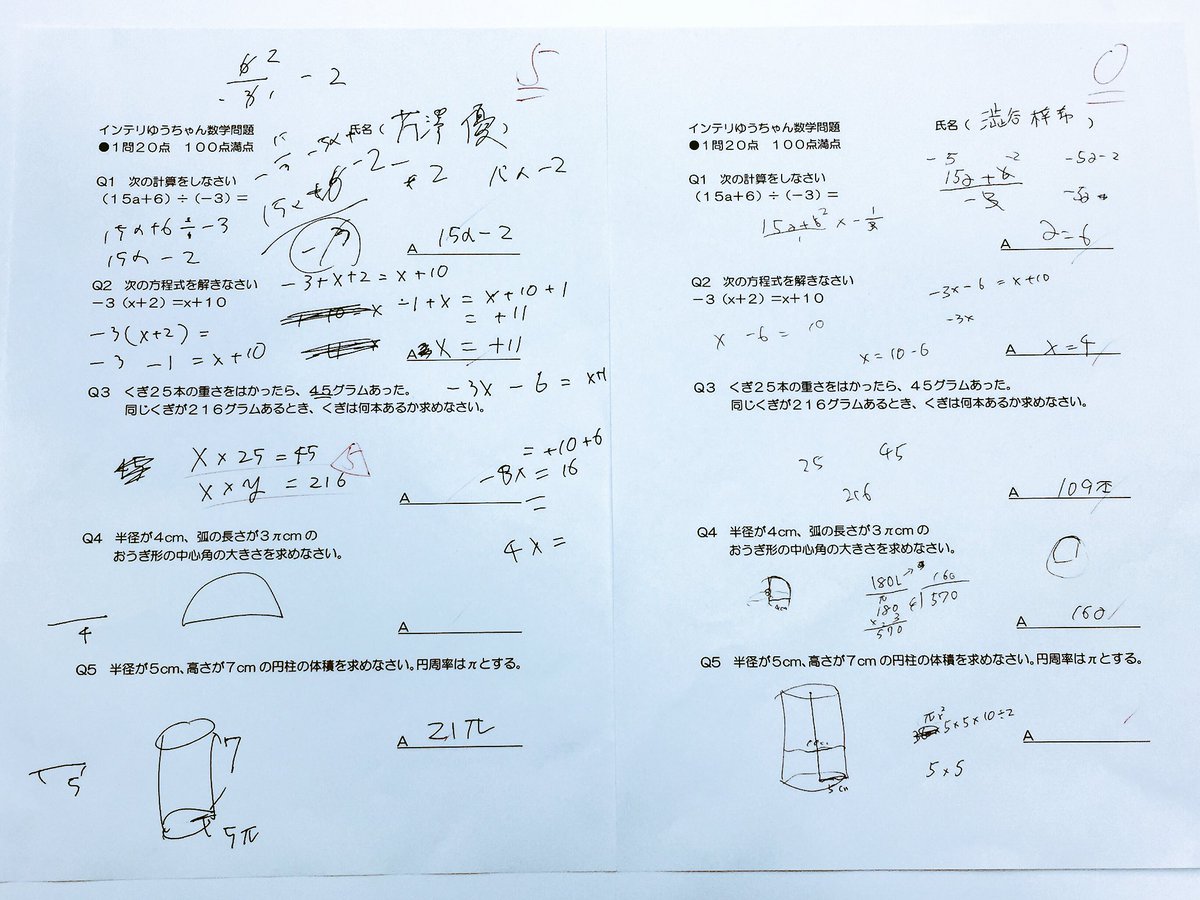 6 2
3 1
- 2
5
インテリゆうちゃん数学問題
●1問20点 100点満点
氏名( 芹澤 優 )
Q1 次の計算をしなさい
(15a+6)÷(-3)=
15a+6 ÷ -3
15a - 2
A 15a-2
Q2 次の方程式を解きなさい
-3(x+2)=x+10
-3+x+2=x+10
÷1+x = x+10+1
= +11
-3(x+2)=
-3 -1 = x+10
A x = +11
Q3 くぎ25本の重さをはかったら、45グラムあった。
同じくぎが216グラムあるとき、くぎは何本あるか求めなさい。
-3x - 6 = x
= +10+6
-8x = 16
=
4x =
X×25=45
X×y=216
5
A
Q4 半径が4cm、弧の長さが3πcmの
おうぎ形の中心角の大きさを求めなさい。
4
A
Q5 半径が5cm、高さが7cmの円柱の体積を求めなさい。円周率はπとする。
5
7
5π
A 21π
0
インテリゆうちゃん数学問題
●1問20点 100点満点
氏名( 澁谷 梓希 )
Q1 次の計算をしなさい
(15a+6)÷(-3)=
-5 -2
15a+6
-3
-5a-2
-5a
15a+6 2 × - 1/3
1
A a=6
Q2 次の方程式を解きなさい
-3(x+2)=x+10
-3x-6=x+10
-3x
x -6= 10
x=10-6
A x=4
Q3 くぎ25本の重さをはかったら、45グラムあった。
同じくぎが216グラムあるとき、くぎは何本あるか求めなさい。
25 45
216
A 109本
Q4 半径が4cm、弧の長さが3πcmの
おうぎ形の中心角の大きさを求めなさい。
4cm
180L
π
180
570
160
570
A 160
Q5 半径が5cm、高さが7cmの円柱の体積を求めなさい。円周率はπとする。
5cm
πr²
×5×5×10÷2
5×5
A